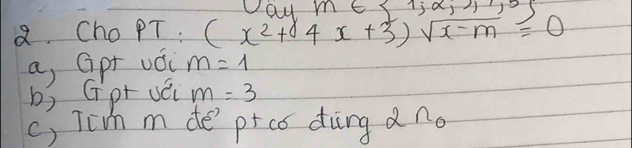 Vậy m ∈ {1; 2; 3; 4; 5}
2. Cho PT: (x² + 4x + 3) √x-m = 0
a, Gpt với m = 1
b, Gpt với m = 3
c, Tìm m để pt có đúng 2 n₀